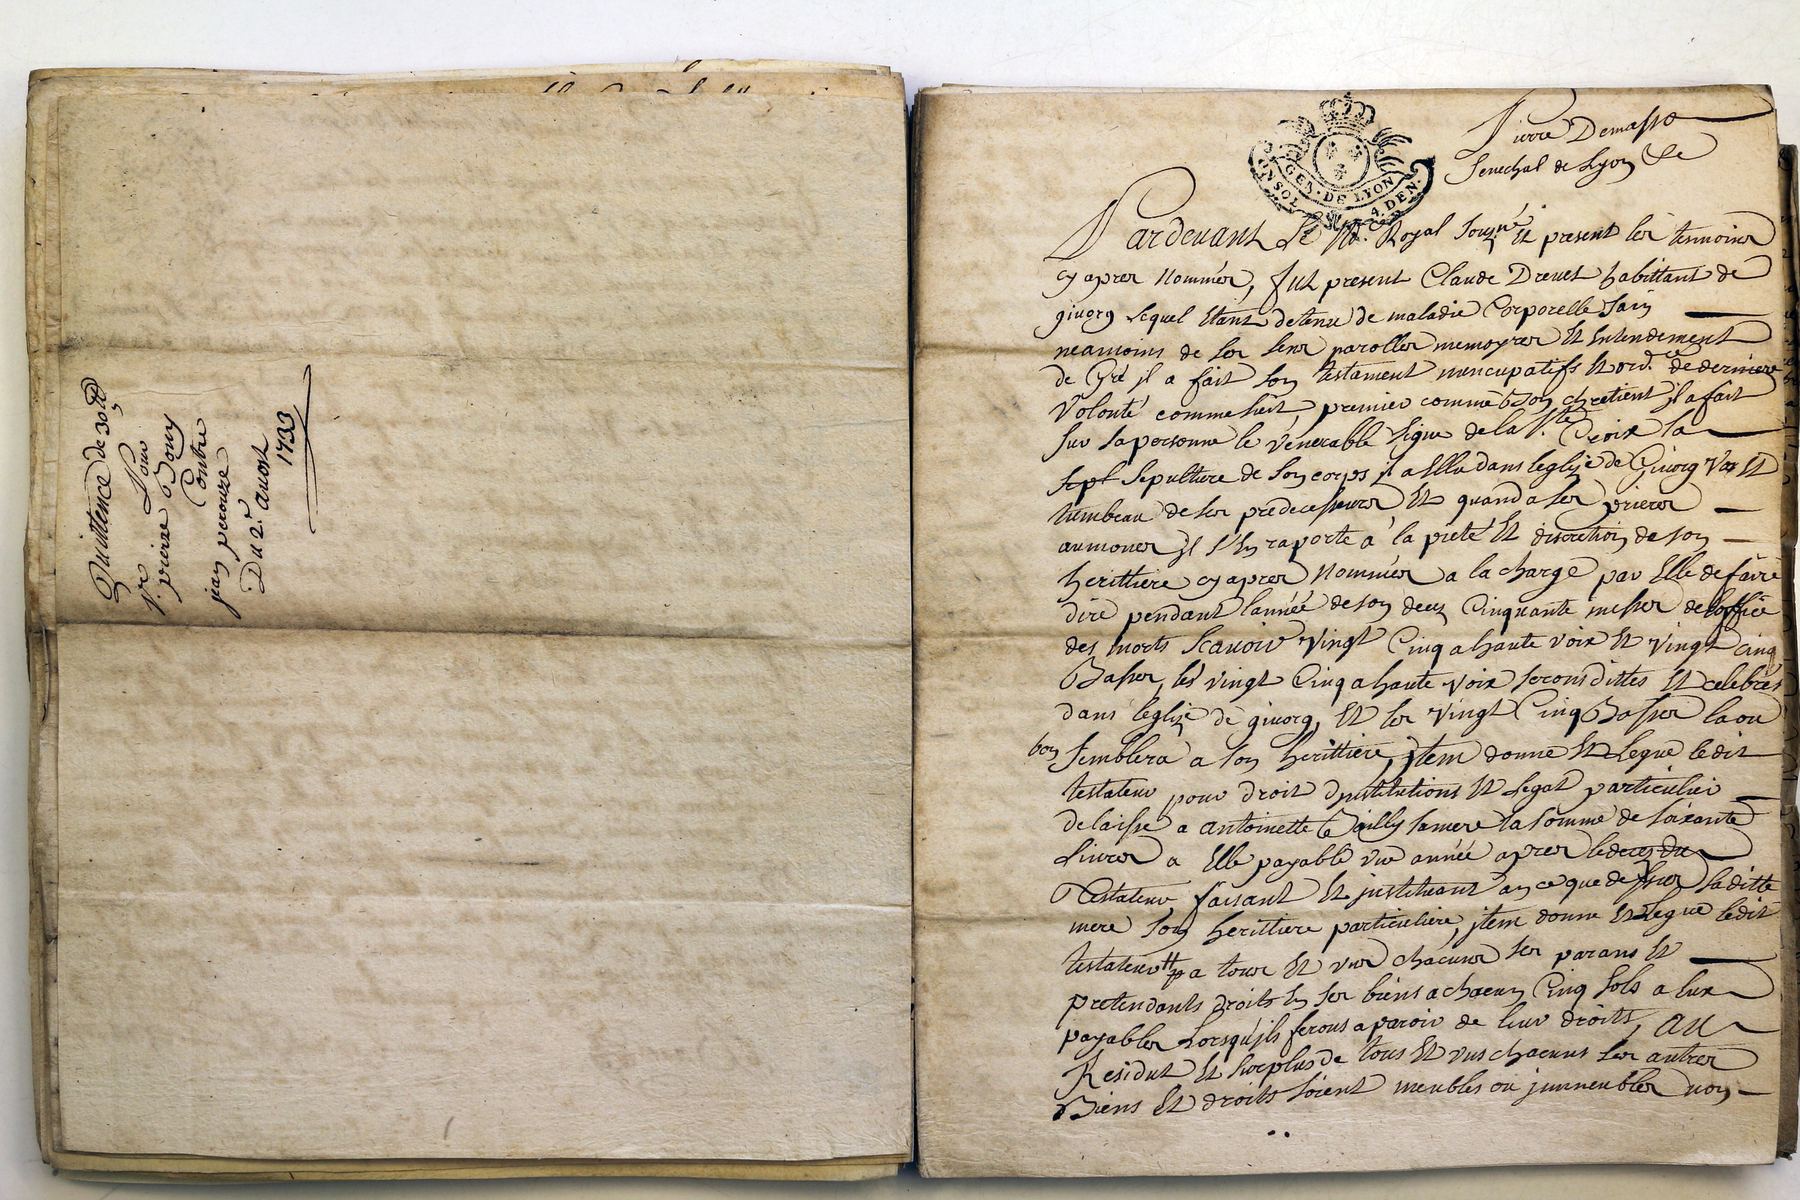 Quittence de 30tt
Pour
Sr. pierre Bouy
Contre
jean perouze
Du 2e. auost
1733
GEN. DE LYON
UN SOL. 4. DEN.
Pierre Demasso
Senechal de Lyon &c
Pardevant Le No.re Royal Souzné Et present les temoins
cy apres Nommés, fut present Claude Drevet habittant de
givors Lequel Etant detenu de maladie Corporelle Sain
neamoins de Ses Sens parolles memoyres Et Entendement
de Gré il a fait Son testament nuncupatifs Et ord.ce de derniere
Volonté comme Suit premier comme bon chretient il a fait
Sur Sa personne le venerable Signe de la Ste. Croix la
Sept Sepulture de Son corps il a Ellu dans leglize de Givors Vas Et
tumbeau de Ses predecesseurs Et quand a Ses prieres
aumones il S'En raporte à la pieté Et discretion de Son
herittiere cy apres Nommées a la charge par Elle de faire
dire pendant lannéé de Son deces Cinquante messes de loffice
des morts Scavoir Vingt Cinq a haute voix Et vingt cinq
Basses, les vingt Cinq a haute voix Serons dittes Et celebres
dans leglize de givors, Et les vingt Cinq Basses la ou
bon Semblera a Son herittiere, jtem donne Et Legue ledit
testateur pour droit dinstitutions Et Legat particulier
delaisse a antoinette Bailly Sa mere la Somme de Soixante
Livres a Elle payable une année apres le deces du
Testateur faisant Et instituant en ce que dessus Saditte
mere Son herittiere particuliere, jtem donne Et Legue ledit
testateur a tous Et uns chacuns Ses parans Et
pretendants droits En Ses biens a chacun Cinq Sols a Eux
payables Lorsqu'ils ferons a paroir de leur droits, au
Residut Et Surplus de tous Et uns chacuns Ses autres
Biens Et droits Soient meubles ou jmmeubles non